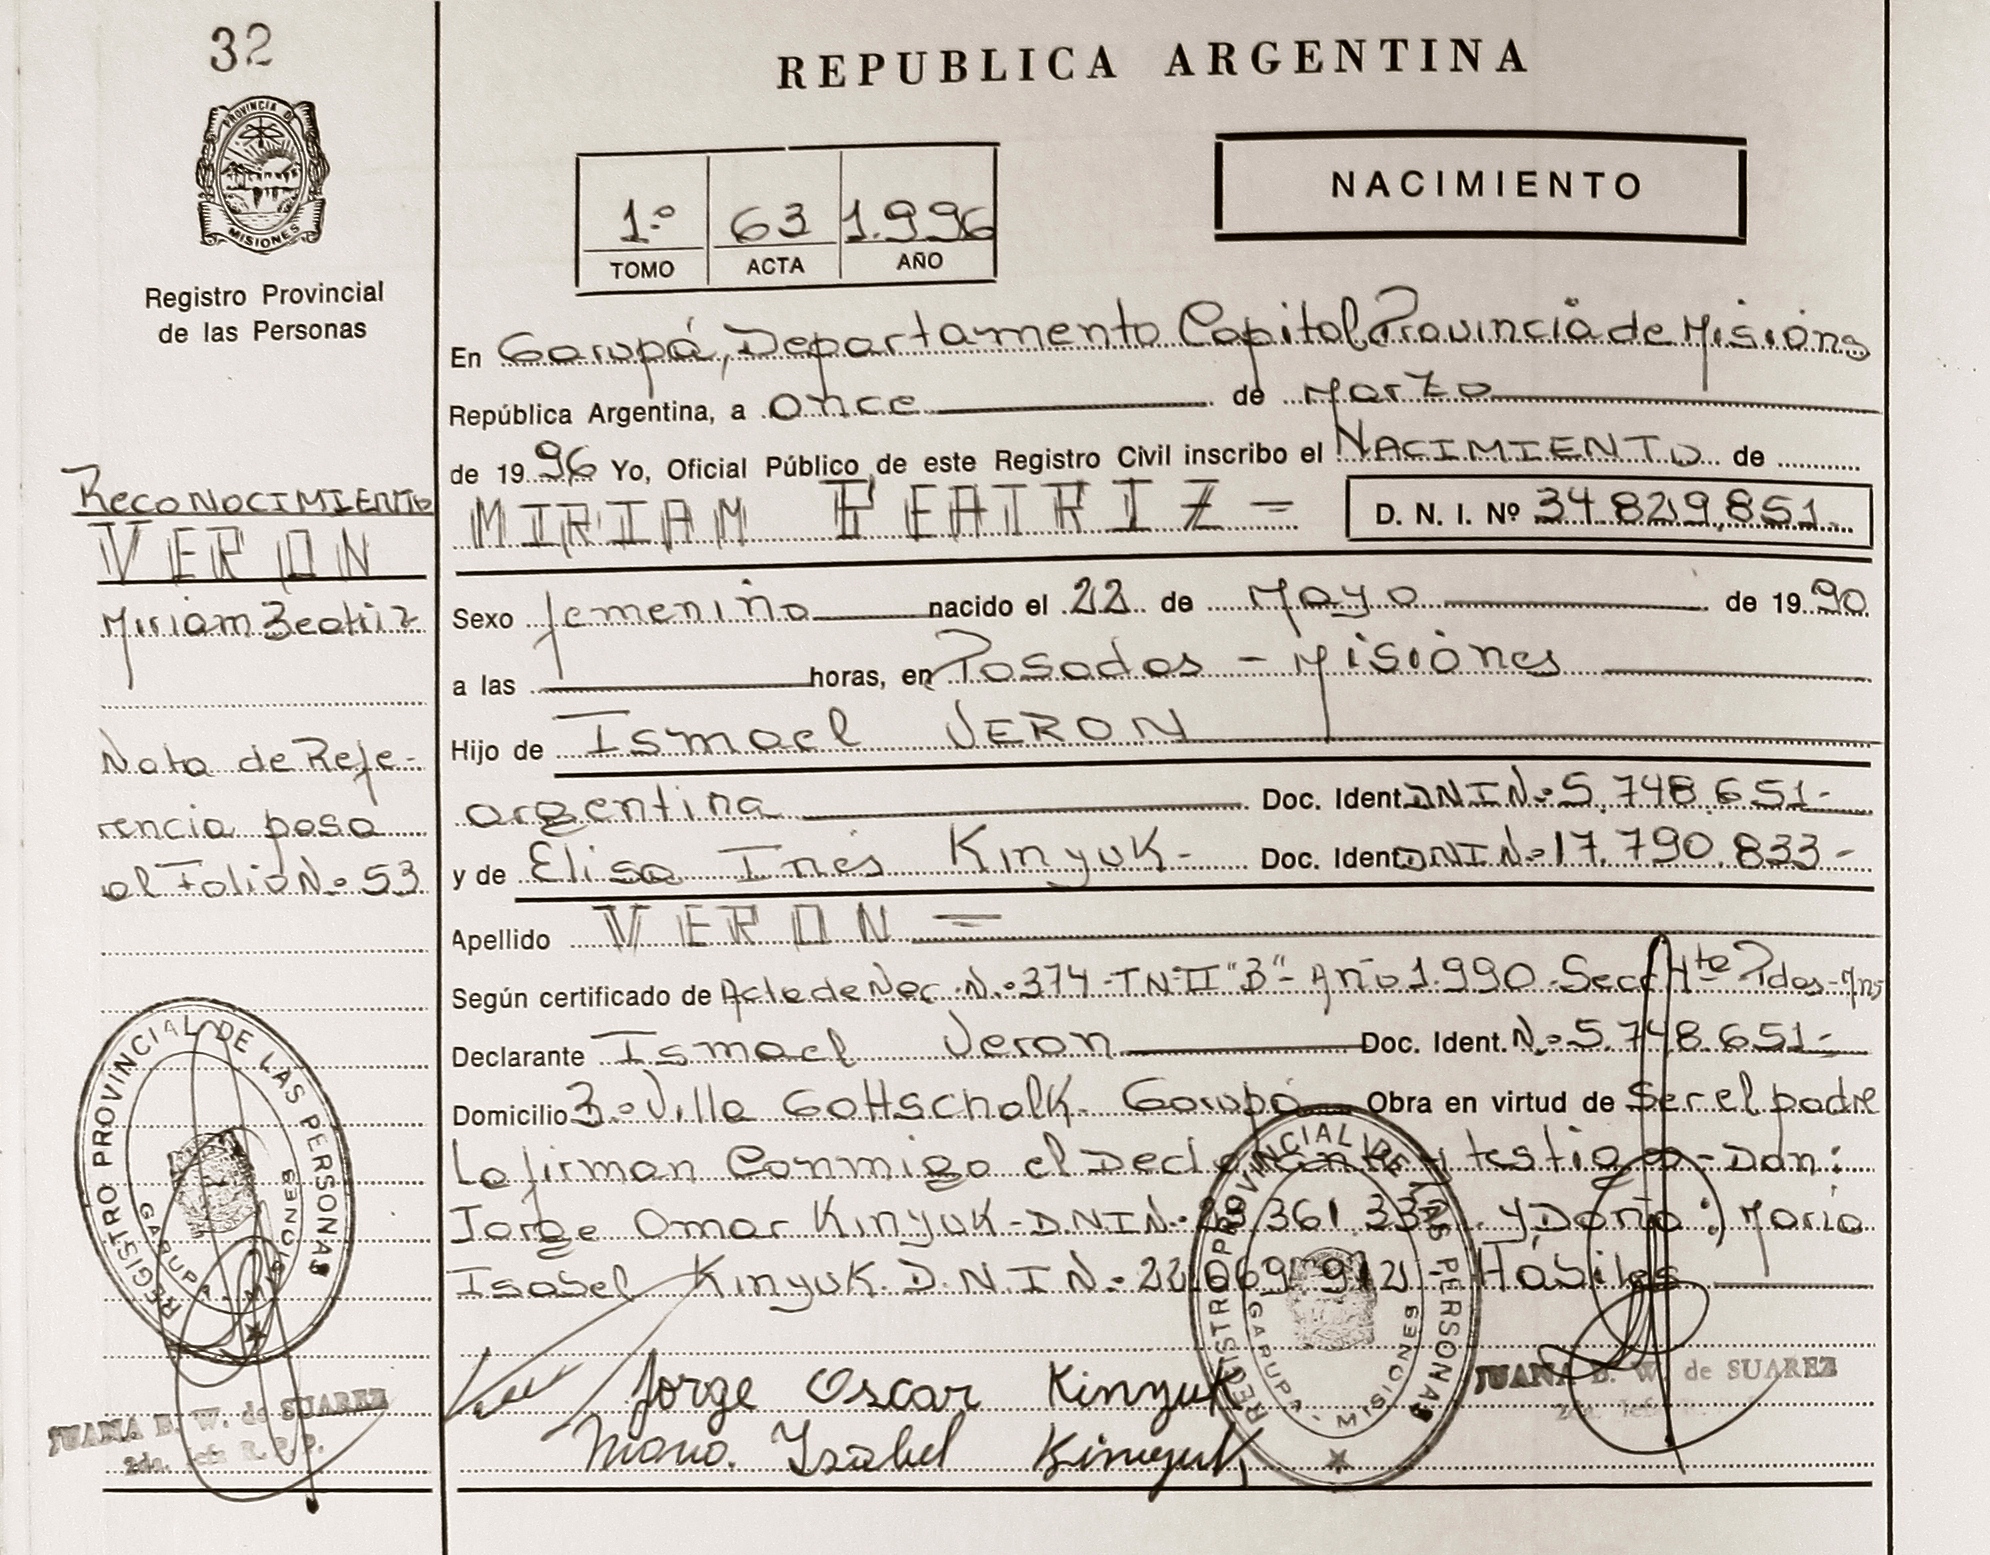 32
PROVINCIA DE
MISIONES
Registro Provincial
de las Personas
RECONOCIMIENTO
VERON
Miriam Beatriz
Nota de Refe-
rencia pasa
al Folio N° 53
REGISTRO PROVINCIAL DE LAS PERSONAS
GARUPA - MISIONES
JUANA B. W. de SUAREZ
2da. Jefa R. P. P.
REPUBLICA ARGENTINA
1° 63 1.996
TOMO ACTA AÑO
NACIMIENTO
En Garupá, Departamento Capital Provincia de Misiones
República Argentina, a once de Marzo
de 19 96 Yo, Oficial Público de este Registro Civil inscribo el NACIMIENTO de
MIRIAM BEATRIZ = D. N. I. Nº 34.829.851-
Sexo femenino nacido el 22 de Mayo de 19 90
a las horas, en Posadas - Misiones
Hijo de Ismael VERON
argentina Doc. Ident DNIN° 5.748.651-
y de Elisa Ines Kinyuk- Doc. Ident DNIN° 17.790.833-
Apellido VERON =
Según certificado de Acta de Nac. N° 374-TN-II "B"- Año 1.990-Secc 4ta Pdas-Mns
Declarante Ismael Veron Doc. Ident. N° 5.748.651-
Domicilio B° Villa Gottschalk Garupá Obra en virtud de Ser el padre
La firman Conmigo el Declarante y testigo-Don:
Jorge Omar Kinyuk-DNIN° 23.361.333 y Doña: Maria
Isabel Kinyuk.D.N.I N° 22.669.912- Hábiles
Jorge Oscar Kinyuk
Maria Isabel Kinyuk
REGISTRO PROVINCIAL DE LAS PERSONAS
GARUPA - MISIONES
JUANA B. W. de SUAREZ
2da. Jefa